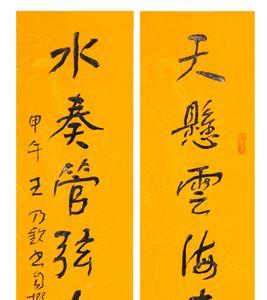 天懸雲海
水奏管弦
甲午王乃欽書自撰